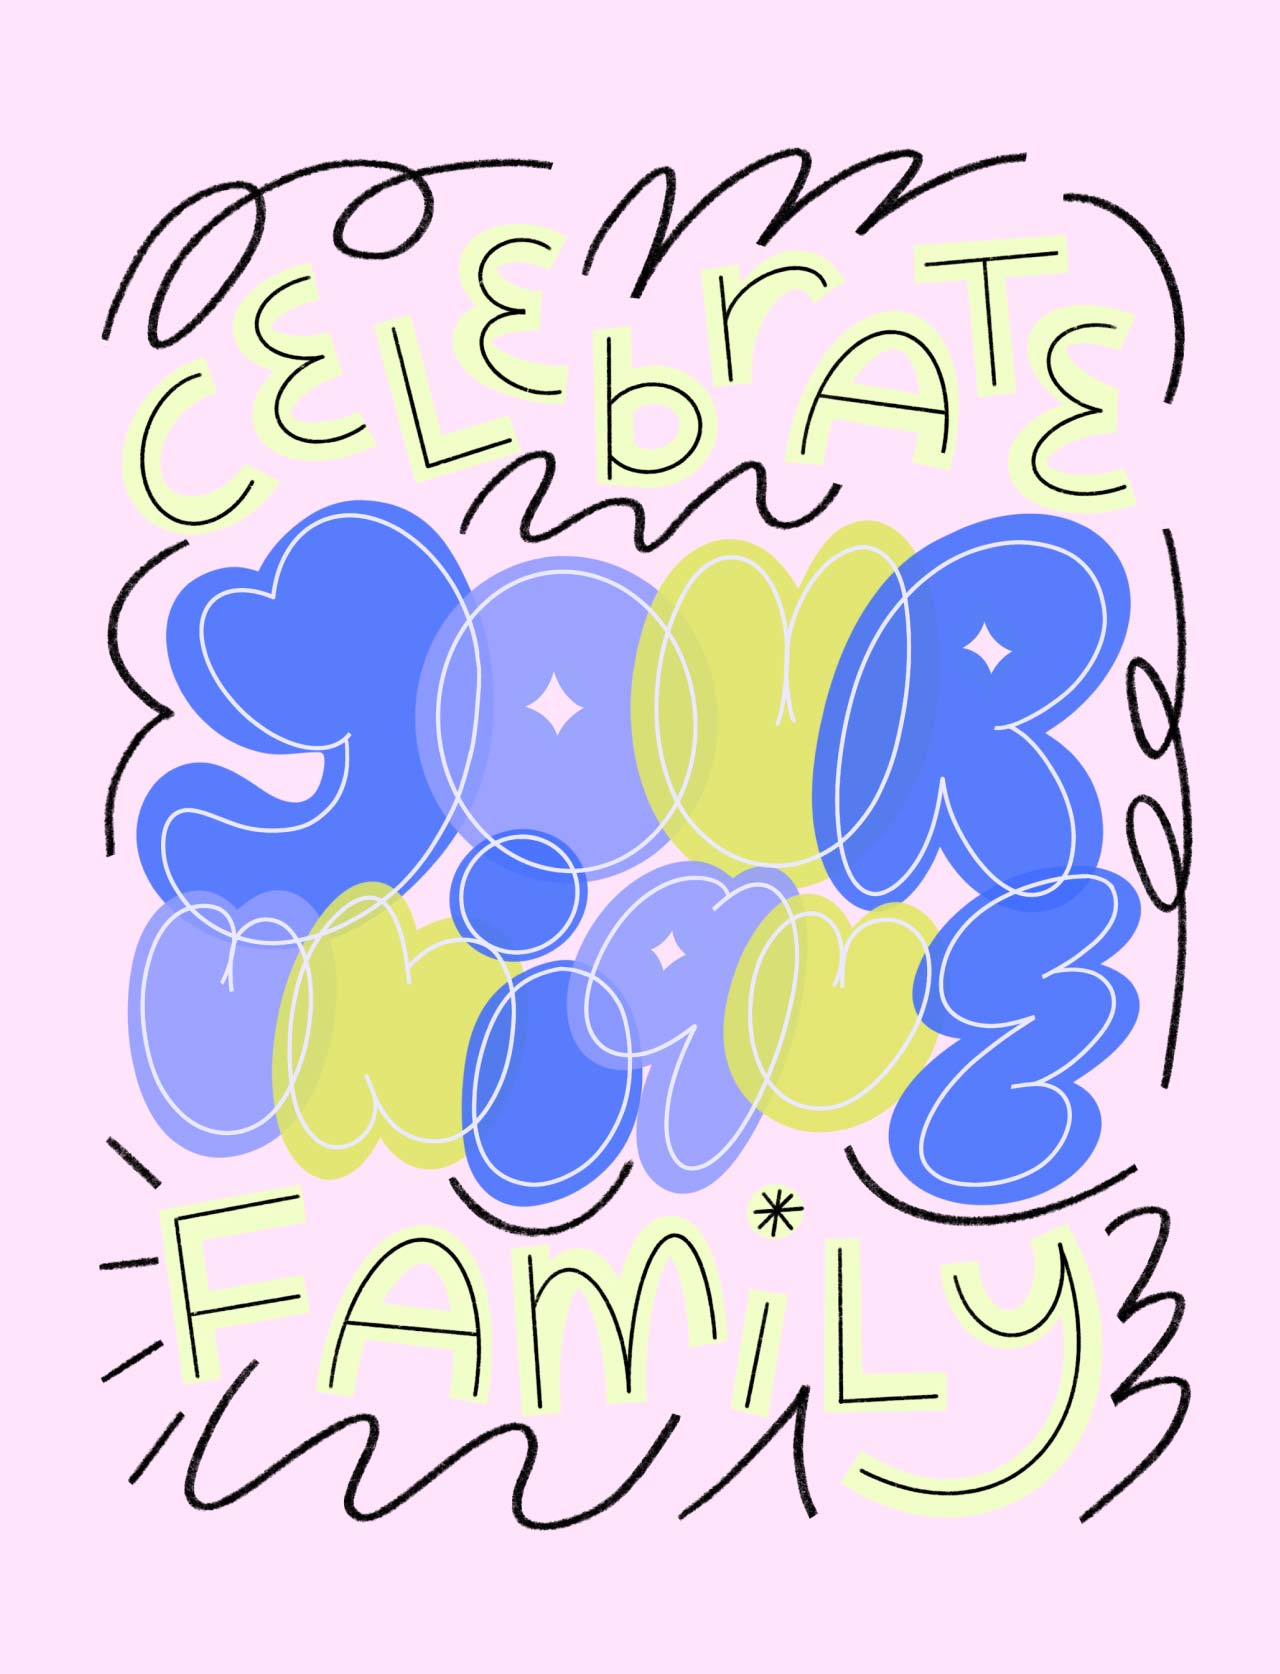 CELEbrATE
yOUR
uniquE
FAmiLy